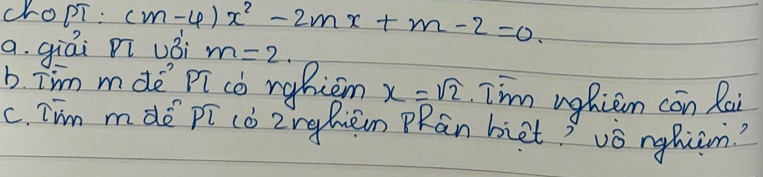 Cho PT: (m-4)x² - 2mx + m - 2 = 0.
a. giải PT với m = 2.
b. Tìm m để PT có nghiệm x = √2. Tìm nghiệm còn lại
c. Tìm m để PT có 2 nghiệm phân biệt? vô nghiệm?